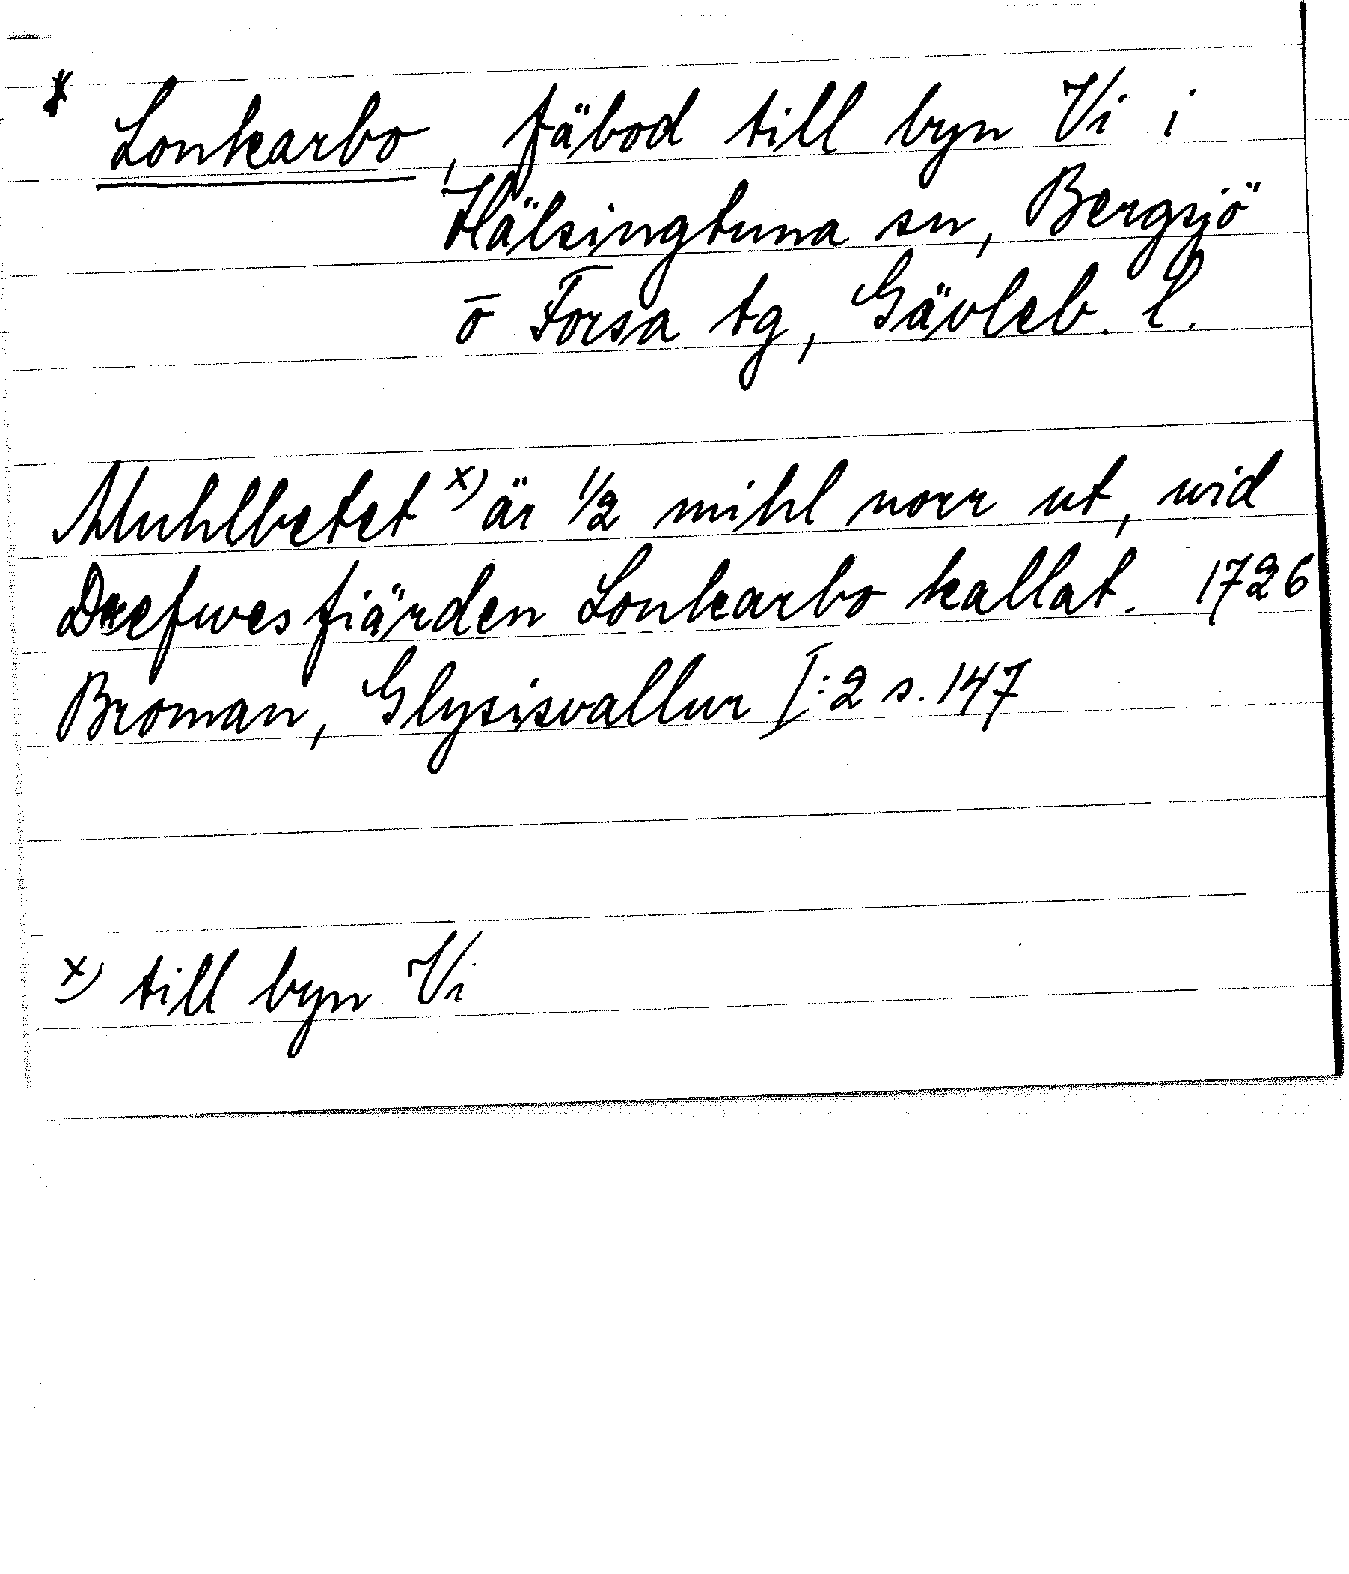 * Lonkarbo, fäbod till byn Vi i
Hälsingtuna sn, Bergsjö
o Forsa tg, Gävleb. l.
Muhlbetet x) är 1/2 mihl norr ut, wid
Drefwesfiärden Lonkarbo kallat. 1726
Broman, Glysisvallur I:2 s. 147
x) till byn Vi